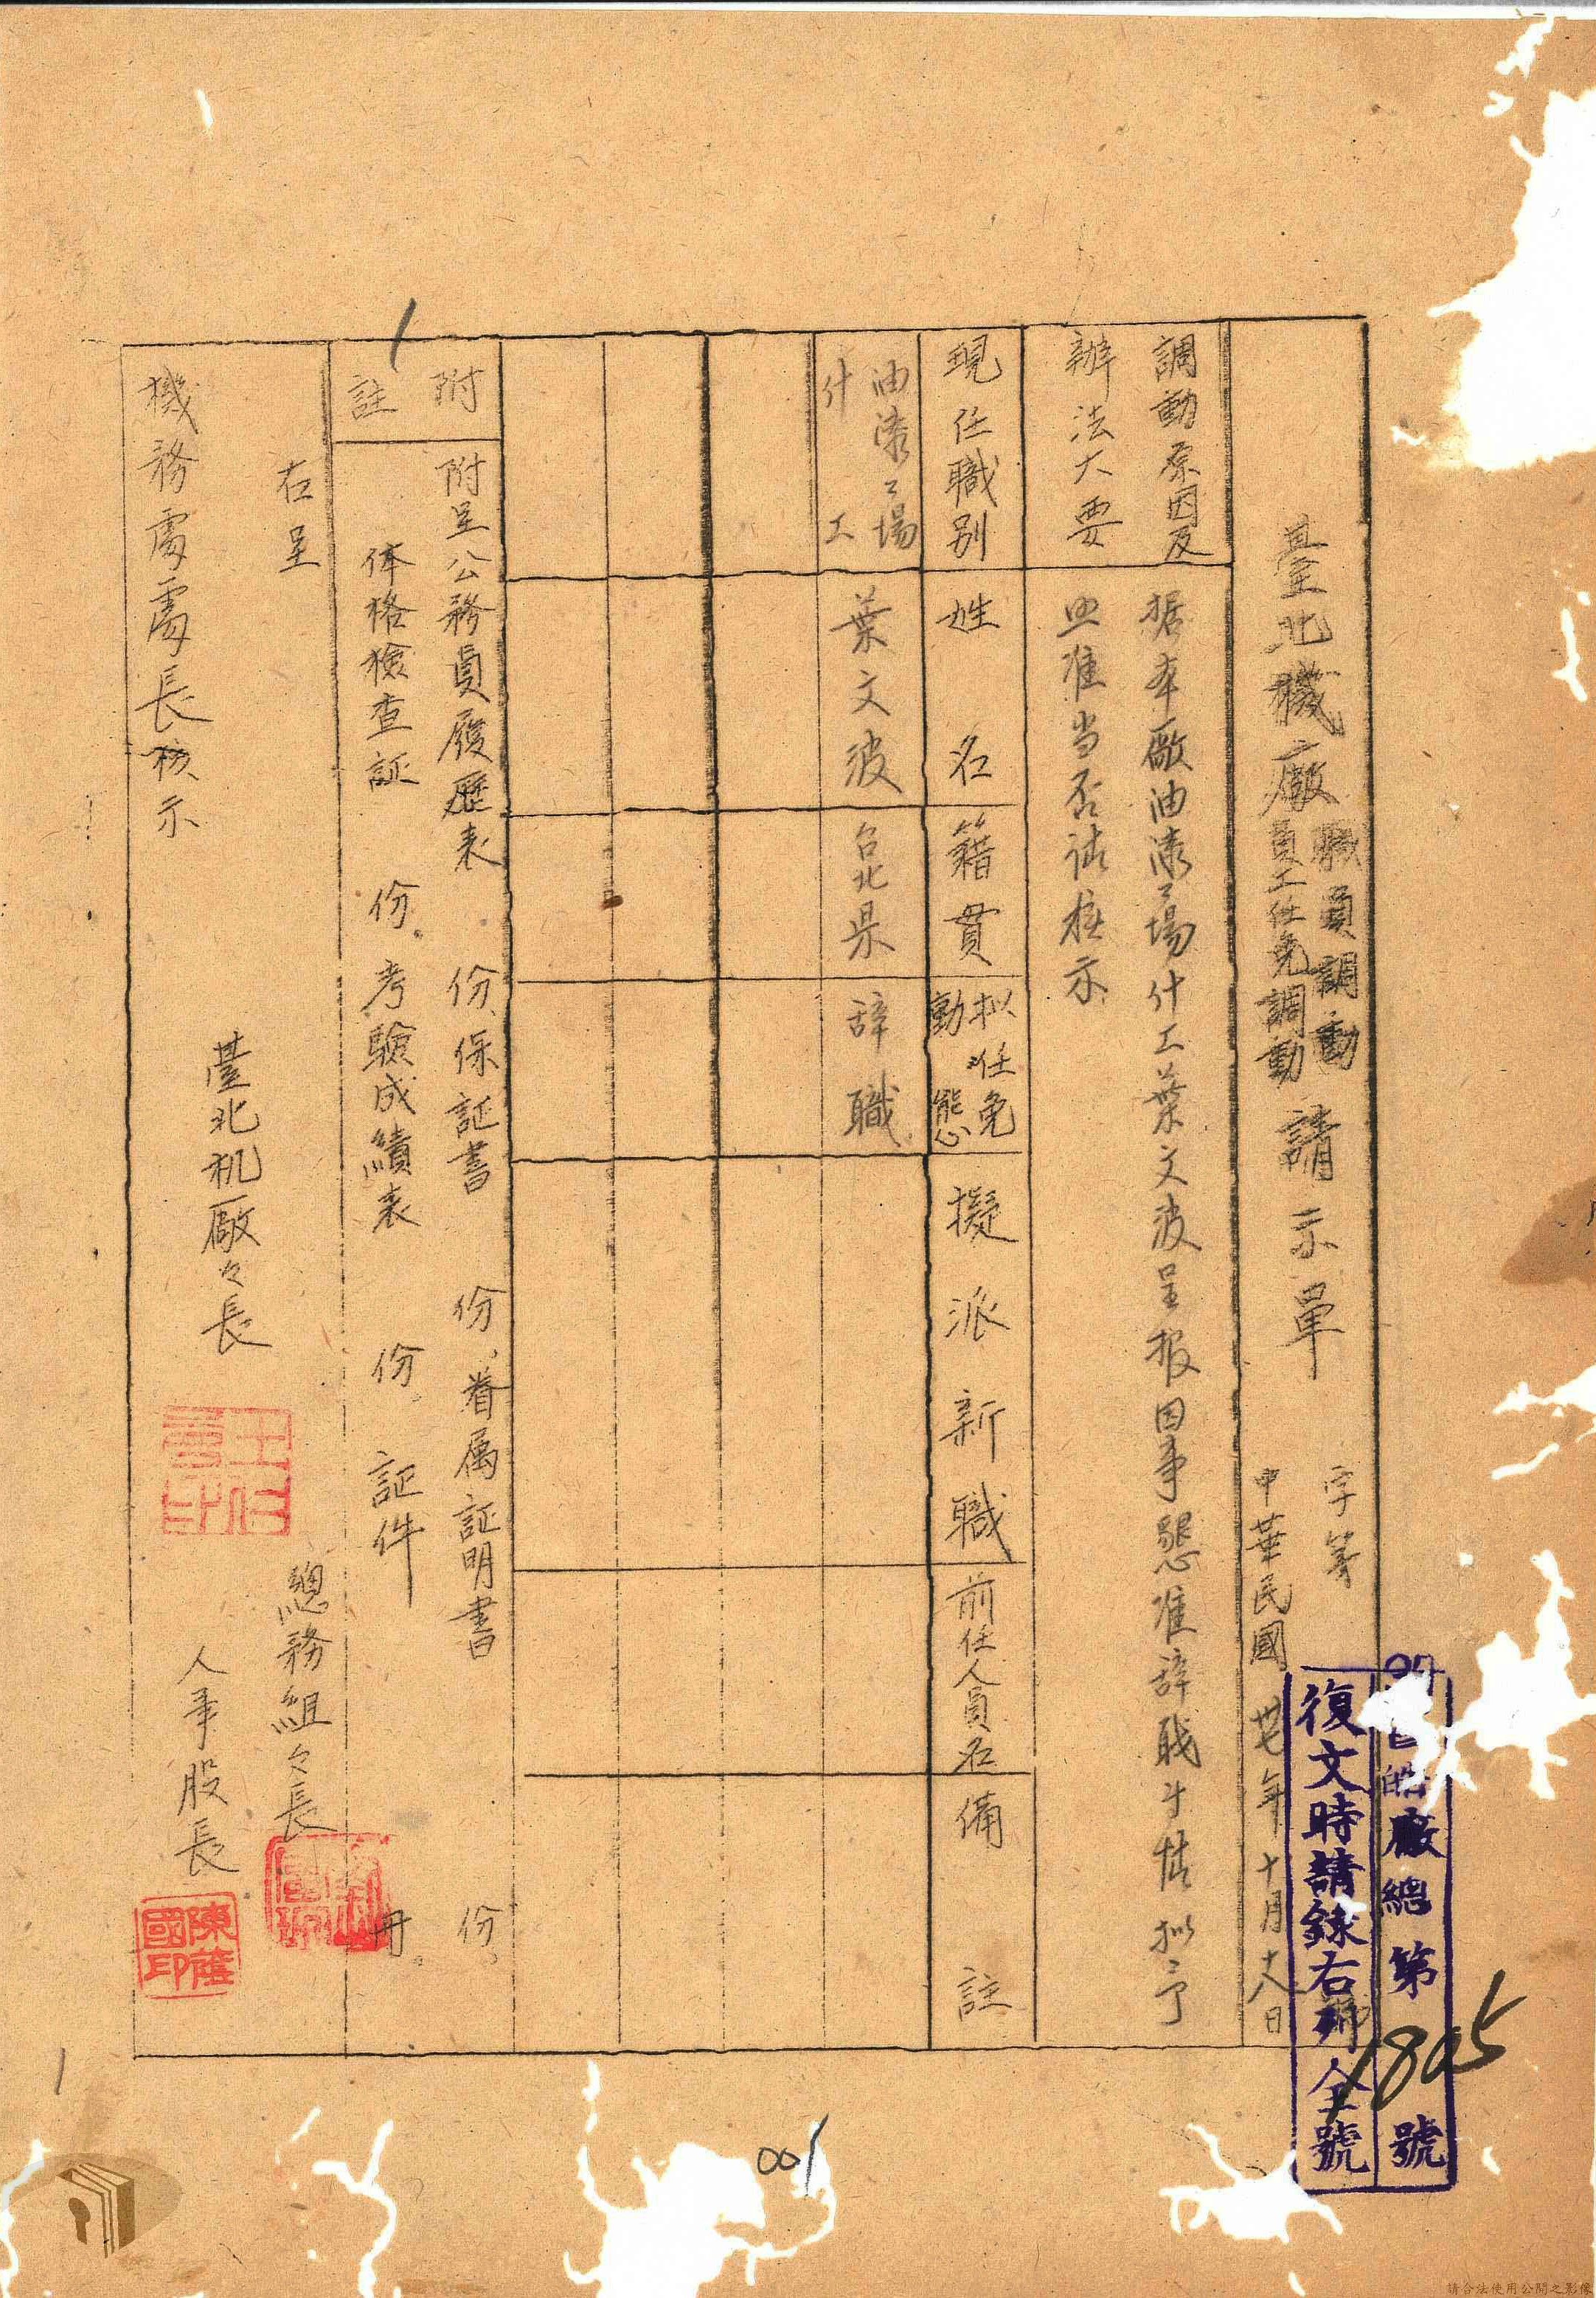 廠總第1805號
復文時請錄右列全號
臺北機廠職員調動員工任免調動請示單
字第
中華民國卅七年十月十八日
調動原因及辦法大要
据本廠油漆工場什工葉文波呈报因事懇准辞職等情拟予
照准当否请核示
現任職別
姓名
籍貫
拟任免動態
擬派新職
前任人員名
備註
油漆工場什工
葉文波
台北県
辞職
附註
附呈公務員履歷表 份、保証書 份、眷属証明書 份、
体格檢查証 份、考驗成績表 份、証件 冊。
右呈
機務處處長核示
臺北机廠々長
總務組々長
人事股長
陳蔭國印
001
請合法使用公開之影像